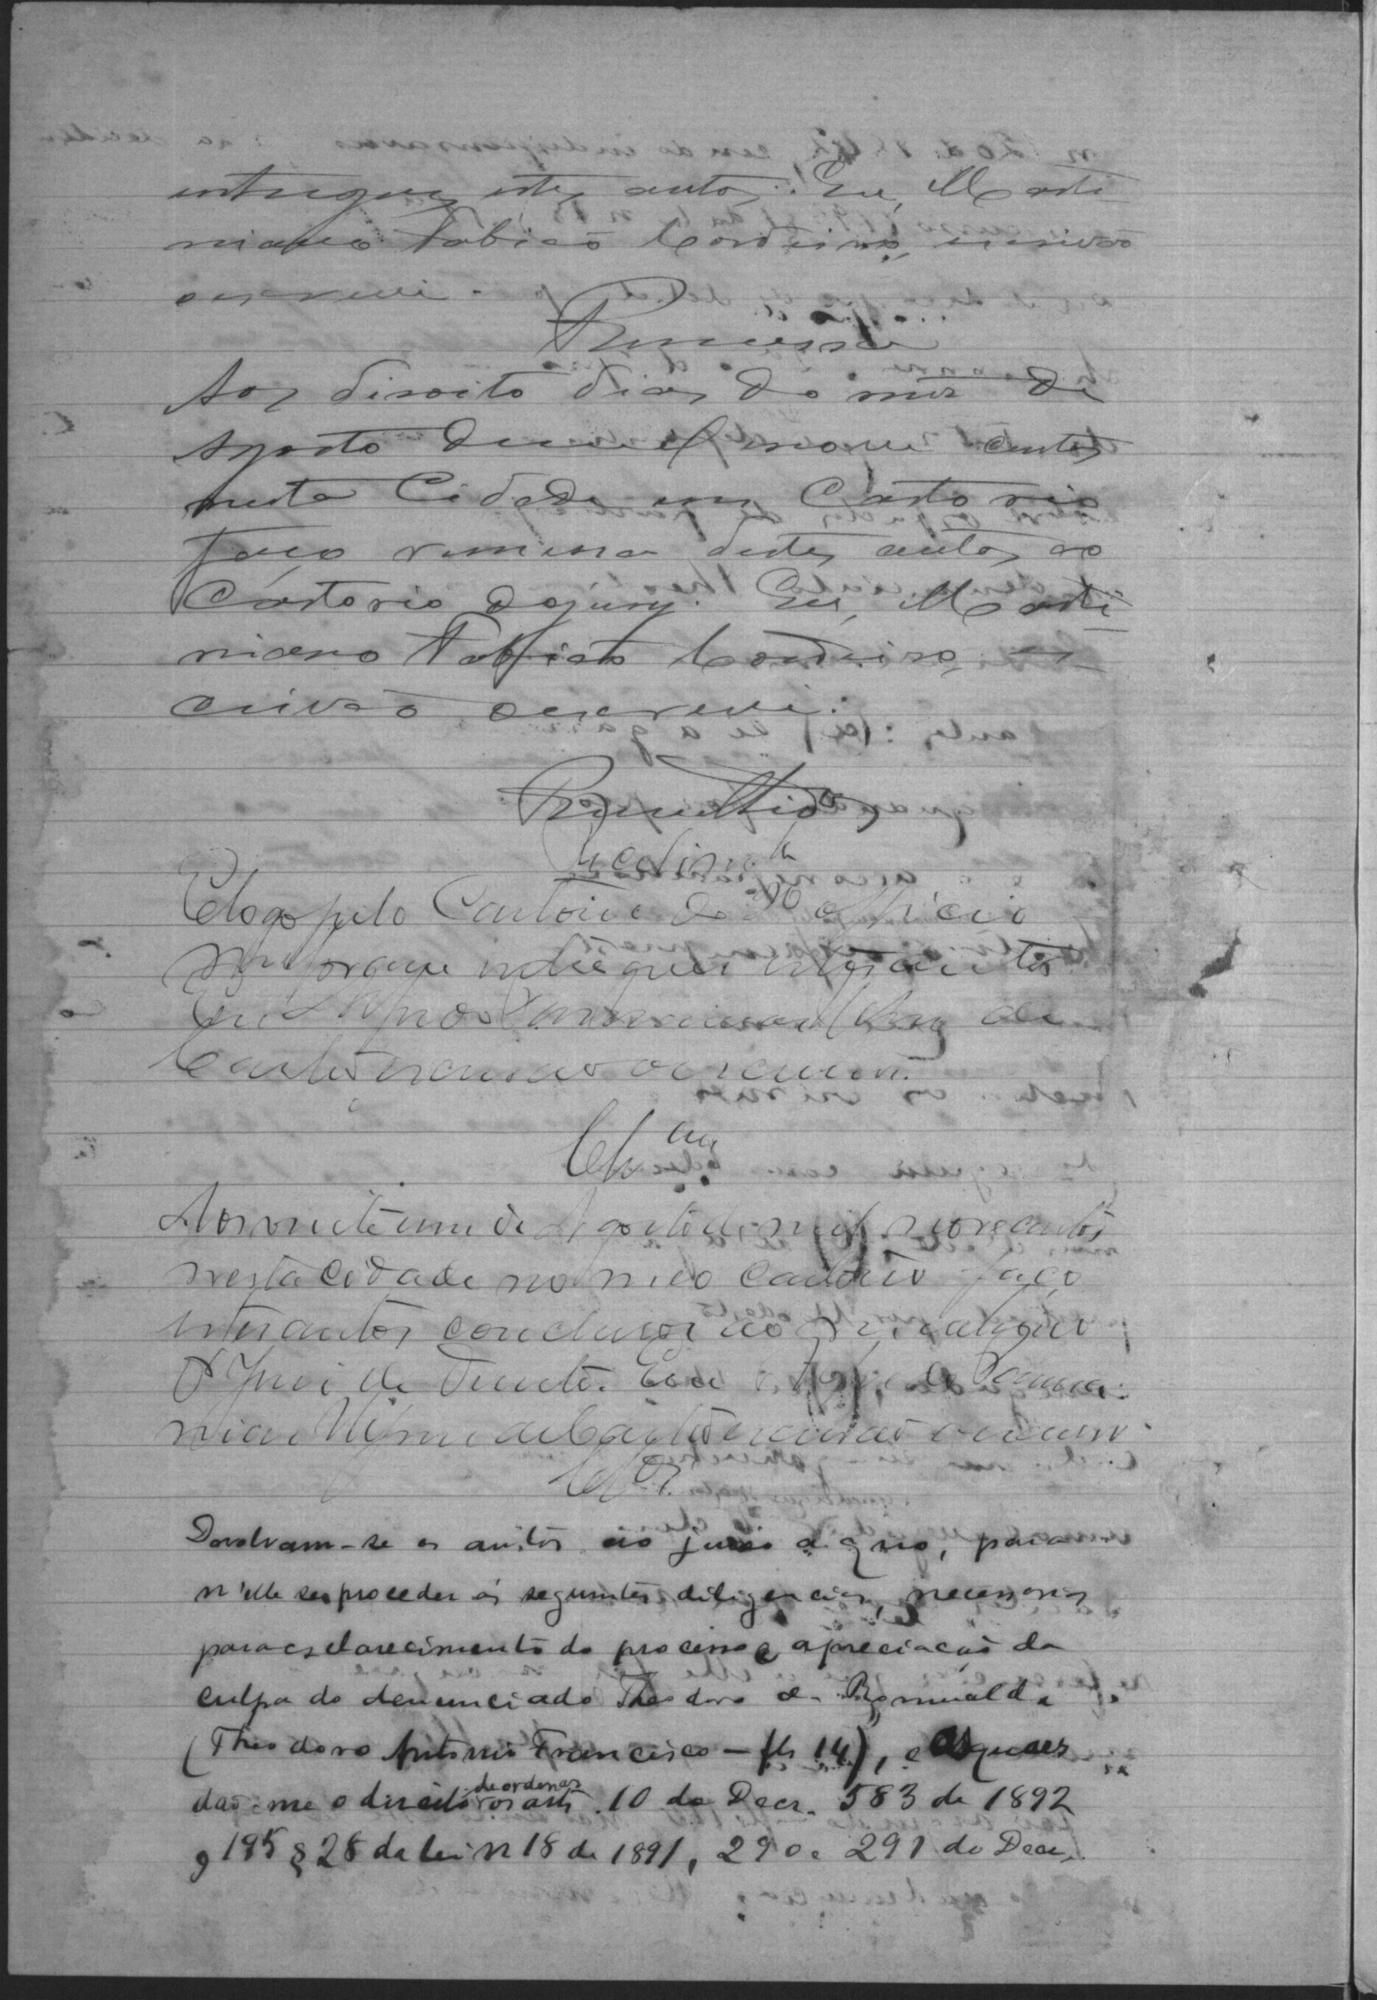 entreguei estes autos. Eu, Marti-
niano Fabião Cordeiro, escrivão
o escrevi.
Remessa
Aos disoito dias do mez de
Agosto de mil nove centos
nesta Cidade em Cartorio
faço remessa destes autos ao
Cartorio do jury. Eu, Marti-
niano Fabião Cordeiro, es-
crivão o escrevi.
Remettidos
Recebim.to
E logo pelo Cartorio do officio
me forão entregues estes autos
Eu
Castro escrivão o escrevi.
Cls.am
Aos vinte um de Agosto de mil novecentos
nesta cidade no meo Cartorio faço
estes autos conclusos ao
Juiz de Direito. Eu
de Castro escrivão o escrevi.
Cls.
Devolvam-se os autos ao juizo d'onde, para
n'elle se proceder ás seguintes diligencias, necessarias
para esclarecimento do processo e apreciação da
culpa do denunciado Theodoro de Romualda
(Theodoro Antonio Francisco – fls 14), e as quaes
dão-me o direito de ordenar os arts. 10 do Decr. 583 de 1892
e 195 § 28 da lei n 18 de 1891, 290 e 291 do Decr.